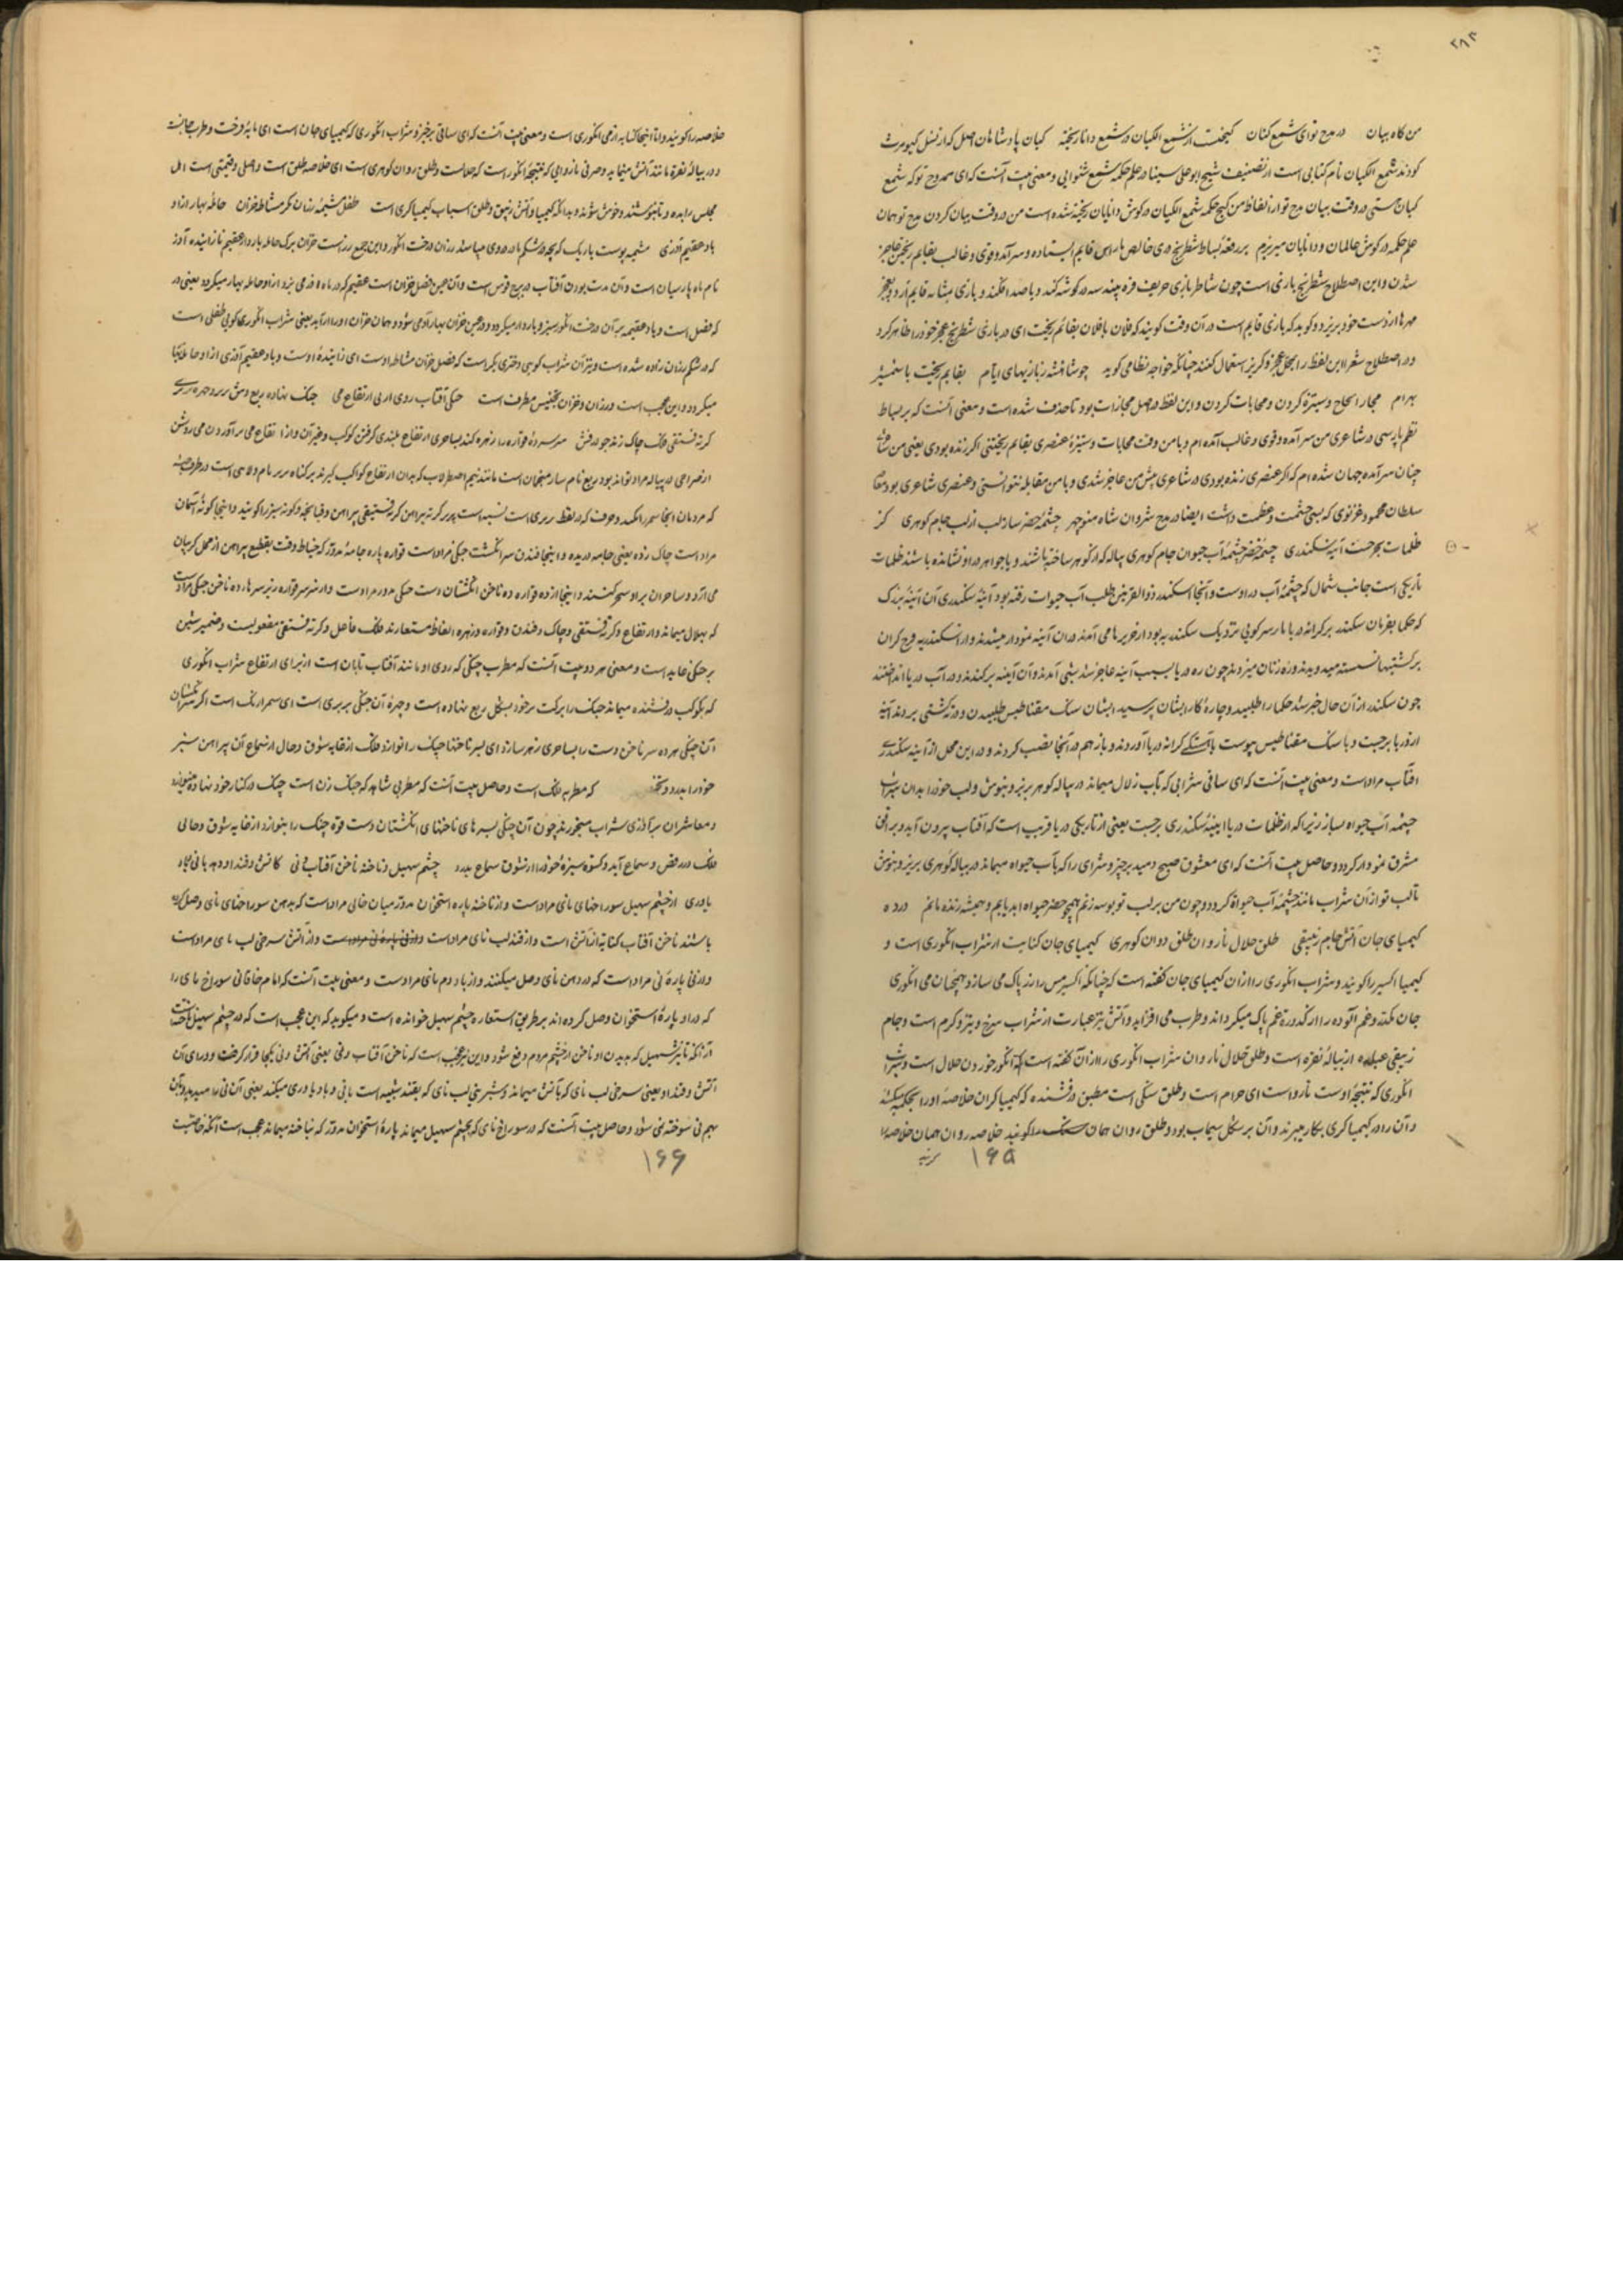 ۲۸۳
من کاه بیان در مدح توای شمع کیان کیخت از شمع الکیان در شمع دانا ریخته کیان پادشاهان اصل که از نسل کیومرث
کودند شمع الکیان نام کتابی است از تصنیف شیخ ابو علی سینا در علم حکمه شمع شنوایی و معنی بیت آنست که ای ممدوح تو که شمع
کیان هستی در وقت بیان مدح تو از الفاظ من کنج حکمه شمع الکیان در کوش دانایان ریخته شده است من در وقت بیان کردن مدح تو همان
علم حکمه در کوش عالمان و دانایان میریزم بر رقعه بساط شطرنج دری خالص پارسی قایم ایستاده و سرآمد و قوی و غالب بقایم ریختن عاجز
شدن و این اصطلاح شطرنج بازی است چون شاطر بازی حریف فرو بیند سه در کوشه کند و یا صد افکند و بازی مشابه قایم آرد و بعجز
مهرها از دست خود بریزد و کوید که بازی قایم است در آن وقت کویند که فلان با فلان بقایم ریخت ای در بازی شطرنج عجز خود را ظاهر کرد
و در اصطلاح شعرا این لفظ را بمحل عجز و کریز استعمال کنند چنانکه خواجه نظامی کوید چو شاشه ز بازیهای ایام بقایم ریخت با شمشیر
بهرام مجارا لجاج و ستیزه کردن و محابات کردن و این لفظ در اصل مجازات بود تا حذف شده است و معنی آنست که بر بساط
نظم پارسی در شاعری من سرآمده و قوی و غالب آمده ام و با من وقت محابات و ستیزه عنصری بقایم ریختی اگر زنده بودی یعنی من شاعر
چنان سرآمده جهان شده ام که اگر عنصری زنده بودی در شاعری پیش من عاجز شدی و با من مقابله نتوانستی و عنصری شاعری بود معاصر
سلطان محمود غزنوی که بسی حشمت و عظمت داشت ایضا در مدح شروان شاه منوچهر چشمه خضر ساز لب از لب جام کوهری کز
ظلمات بحر جست آینه سکندری چشمه خضر چشمه آب حیوان جام کوهری پیاله که از کوهر ساخته باشند و یا جواهر در او نشانده باشند ظلمات
تاریکی است جانب شمال که چشمه آب در اوست و آنجا اسکندر ذوالقرنین بطلب آب حیوات رفته بود آینه سکندری آن آینه بزرک
که حکما بفرمان سکندر بر کرانه دریا بار سر کوبی نزدیک سکندریه بود از خریرها می آمدند در آن آینه نمودار میشدند و از اسکندریه فوج کران
بر کشتیها نشسته میدویدند و ره زنان میزدند چون ره دریا بسبب آینه عاجز شدند شبی آمدند و آن آینه بر کندند و در آب دریا انداختند
چون سکندر از آن حال خبر شد حکما را طلبید و چاره کار ایشان پرسید ایشان سنک مقناطیس طلبیدن و در ته کشتی بردند آینه
از دریا برجست و با سنک مقناطیس پیوست باهستکی کرانه دریا آوردند و باز هم در آنجا نصب کردند و در این محل از آینه سکندری
آفتاب مراد است و معنی بیت آنست که ای ساقی شرابی که بآب زلال میماند در پیاله کوهر بریز و بنوش و لب خود را بدان شراب
چشمه آب حیواه بساز زیرا که از ظلمات دریا آینه سکندری برجست یعنی از تاریکی دریا قریب است که آفتاب بیرون آید و بر افق
مشرق نمودار کردد و حاصل بیت آنست که ای معشوق صبح دمید برخیز و شرابی را که بآب حیواه میماند در پیاله کوهری بریز و بنوش
تا لب تو از آن شراب مانند چشمه آب حیواة کردد و چون من بر لب تو بوسه زنم همچو خضر حیواه ابد یابم و همیشه زنده مانم در ده
کیمیای جان آتش جام زیبقی طلق حلال ناروان طلق روان کوهری کیمیای جان کنایت از شراب انکوری است و
کیمیا اکسیر را کویند و شراب انکوری را از آن کیمیای جان کفته است که چنانکه اکسیر مس را زر پاک می سازد همچنان می انکوری
جان مکدر و غم آلوده را از کدورة غم پاک میکرداند و طرب می افزاید و آتش نیز عبارت از شراب سرخ و تیز و کرم است و جام
زیبقی عباره از پیاله نقره است و طلق حلال ناروان شراب انکوری را از آن کفته است که انکور خوردن حلال است و شراب
انکوری که نتیجه اوست نارواست ای حرام است و طلق سنکی است مطبق درخشنده که کیمیاکران خلاصه او را بحکمه میکشند
و آن را در کیمیاکری بکار میبرند و آن بر شکل سیماب بود و طلق روان همان سنک را کویند خلاصه روان همان خلاصه را
۱۶۵
خلاصه را کویند و اما اینجا کنایه از می انکوری است و معنی بیت آنست که ای ساقی برخیز و شراب انکوری که کیمیای جان است ای مایه فرحت و طرب جانست
و در پیاله نقره مانند آتش مینماید و صرفی ناروایی که نتیجه انکور است که حلالست و طلق روان کوهری است ای خلاصه طلق است و اصلی و قیمتی است اهل
مجلس را بده و تا بنوشند و خوش شوند و بدانکه کیمیا و آتش و زیبق و طلق اسباب کیمیاکری است طفل مشیمه رزان بکر مشاطه خزان حامله بهار از او
باد عقیم آذری مشیمه پوست باریک که بچه در شکم مادر در وی میباشد رزان درخت انکور و این جمع رز است خزان برک حامله باردار عقیم نازاینده آذر
نام ماه پارسیان است و آن مدت بودن آفتاب در برج قوس است و آن عین فصل خزان است عقیم که در ماه آذر می وزد از او حامله بهار میکردد یعنی در
که فصل است و باد عقیمه بر آن درخت انکور سبز و باردار میکردد و در عین خزان بهار آدمی شود و همان خزان او را آراید یعنی شراب انکوری کویی طفلی است
که در شکم رزان زاده شده است و نیز آن شراب کویی دختری بکر است که فصل خزان مشاطه اوست ای زاینده اوست و باد عقیم آذری از او حامله بهار
میکردد و این عجب است و رزان و خزان تجنیس مطرف است چنکی آفتاب روی از پی ارتفاع می چنک نهاده ربع وش بر بر و چهره بربری
کرته فستقی فلک چاک زند چو درفش سر سرده قواره را زهره کند بساحری ارتفاع بلندی کرفتن کوکب و غیر آن و از ارتفاع می برآوردن می روشن
از صراحی در پیاله مراد تواند بود ربع نام ساز منجمان است مانند نیم اصطرلاب که بدان ارتفاع کواکب کیرند بر کناه بربر نام ولایتی است در طرف حبشه
که مردمان آنجا سمرا لکنند و حرف که در لفظ بربری است نسبه است بربر کرته پیراهن کرته فستیقی پیراهن و قبا پنجه و کونه سبز را کویند و اینجا کونه آسمان
مراد است چاک زده یعنی جامه دریده و اینجا فندق سر انکشت چنکی مراد است قواره پاره جامه مدور که خیاط وقت بقطیع پیراهن از محل کریبان
می آرد و ساحران بر او سحر کنند و اینجا از ده قواره ده ناخن انکشتان دست چنکی مدور مراد است و از سر سر قواره زیر سرها ده ناخن چنکی مراد است
که بهلال میماند و ارتفاع و کرته فستقی و چاک و فندق و قواره و زهره الفاظ مستعارند فلک فاعل و کرته فستقی مفعولیست و ضمیر شین
بر چنکی عاید است و معنی هر دو بیت آنست که مطرب چنکی که روی او مانند آفتاب تابان است از برای ارتفاع شراب انکوری
که بکوکب درخشنده میماند چنک را برکت بر خود بشکل ربع نهاده است و چهره آن چنکی بربری است ای سمرا رنک است اکر سرانکشتان
آن چنکی هر ده سر ناخن دست را بساحری زهر سازد ای بسر ناخنها چنک را نوازد فلک از غایه شوق و حال از سماع آن پیراهن سبز
خود را بدرد و که مطربه فلک است و حاصل بیت آنست که مطربی شاهد که چنک زن است چنک در کنار خود نهاده مینوازد
و معاشران سرآذری شراب میخورند چون آن چنکی بسرهای ناخنهای انکشتان دست قوه چنک را بنوازد از غایه شوق و حالی
فلک در رقص و سماع آید و کسوه سبزه خود را از شوق سماع بدرد چشم سهیل و ناخنه ناخن آفتاب و نی کاتش و قند او دهد با نی و باد
یاوری از چشم سهیل سوراخهای نای مراد است و از ناخنه پاره استخوان مدور میان خالی مراد است که بدهن سوراخهای نای وصل کرده
باشند ناخن آفتاب کنایه از آتش است و از قند لب نای مراد است و از آتش سرخی لب نای مراد است
و از نی پاره نی مراد است که در دهن نای وصل میکنند و از باد دم نای مراد است و معنی بیت آنست که امام خاقانی سوراخ نای را
که در او پاره استخوان وصل کرده اند بر طریق استعاره چشم سهیل خوانده است و میکوید که این عجب است که در چشم سهیل ناخنه است
از آنکه تاثیر سهیل که بدیدن او ناخن از چشم مردم دفع شود و این نیز عجب است که ناخن آفتاب و نی یعنی آتش و نی یکجا قرار کرفت و ورای آن
آتش و قند او یعنی سرخی لب نای که بآتش میماند و شیرینی لب نای که بقند شبیه است با نی و باد یاوری میکند یعنی آن نی را میدمد و بآن
بهم نی سوخته نمی شود و حاصل بیت آنست که در سوراخ نای که بچشم سهیل میماند پاره استخوان مدور که بناخنه میماند عجب است آنکه خاصیت
۱۶۶